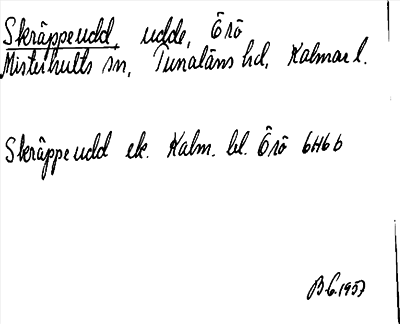 Skräppeudd, udde, Örö
Misterhults sn, Tunaläns hd, Kalmar l.
Skräppeudd ek. Kalm. bl. Örö 6H6b
B G. 1957